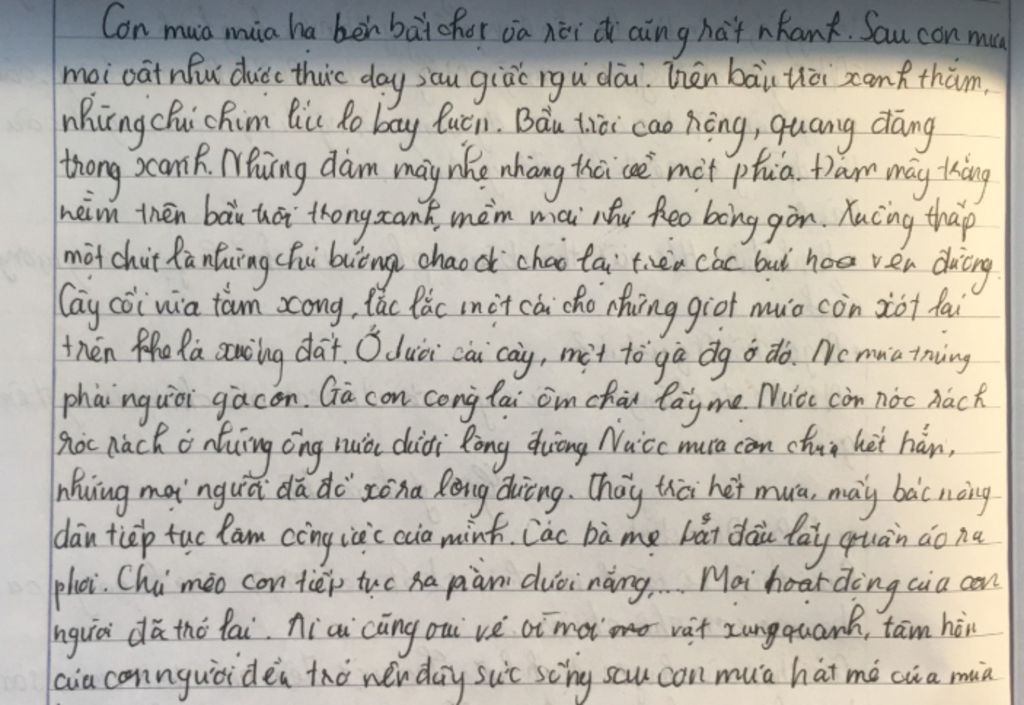 Cơn mưa mùa hạ đến bất chợt và rời đi cũng rất nhanh. Sau cơn mưa
mọi vật như được thức dạy sau giấc ngủ dài. Trên bầu trời xanh thẳm,
những chú chim líu lo bay lượn. Bầu trời cao rộng, quang đãng
trong xanh. Những đám mây nhẹ nhàng trôi về một phía. Đám mây trắng
nằm trên bầu trời trong xanh, mềm mại như kẹo bông gòn. Xuống thấp
một chút là những chú bướng chao đi chao lại trên các bụi hoa vên đường.
Cây cối vừa tắm xong, lắc lắc một cái cho những giọt mưa còn xót lại
trên khe lá xuống đất. Ở dưới cái cây, một tổ gà đg ở đó. Nc mưa trúng
phải người gà con. Gà con cong lại ôm chặt lấy mẹ. Nước còn róc rách
róc rách ở những ống nước dưới lòng đường Nước mưa còn chưa hết hẳn,
nhưng mọi người đã đổ xô ra lòng đường. Thấy trời hết mưa, mấy bác nông
dân tiếp tục làm công việc của mình. Các bà mẹ bắt đầu lấy quần áo ra
phơi. Chú mèo con tiếp tục ra nằm dưới nắng,... Mọi hoạt động của con
người đã trở lại. Ai ai cũng vui vẻ vì mọi vật xung quanh, tâm hồn
của con người đều trở nên đầy sức sống sau cơn mưa hát mẻ của mùa